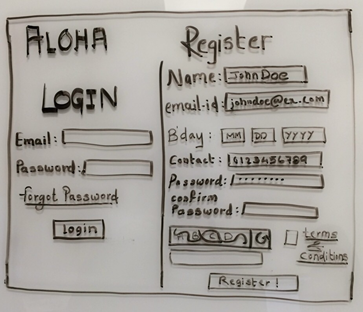 ALOHA
LOGIN
Email:
Password:
forgot Password
login
Register
Name: John Doe
email-id: johndoe@ex.com
B'day: MM DD YYYY
Contact: 0123456789
Password: ........
confirm
Password:
terms
&
Conditions
Register!